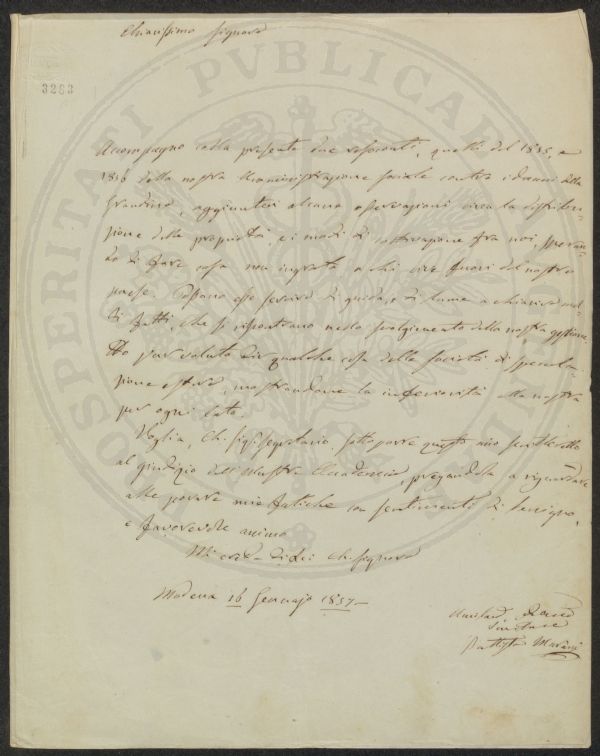 Chiarissimo Signore
3263
PROSPERITATI PVBLICAE AVGENDAE
Accompagno colla presente due resoconti, quelli del 1855, e
1856 della nostra Amministrazione sociale contro i danni della
Grandine, aggiuntevi alcune osservazioni circa la distribu-
zione delle proprietà, e i modi di coltivazione fra noi, speran-
do di fare cosa non ingrata a chi vive fuori del nostro
paese. Possano esse servire di guida, e di lume a chiarire mol-
ti fatti, che si riscontrano nello svolgimento della nostra gestione.
Ho pur voluto dir qualche cosa delle società di specula-
zione estere, mostrandone la inferiorità alla nostra
per ogni lato.
Voglia, Ch. Sig. Segretario, sottoporre questo mio
al giudizio dell'Illustre Accademia, pregandola a riguardare
alle povere mie fatiche con sentimenti di benigno,
e favorevole animo.
Mi creda di Lei Ch. Signore
Modena 16 Gennajo 1857
Servitore
Battista